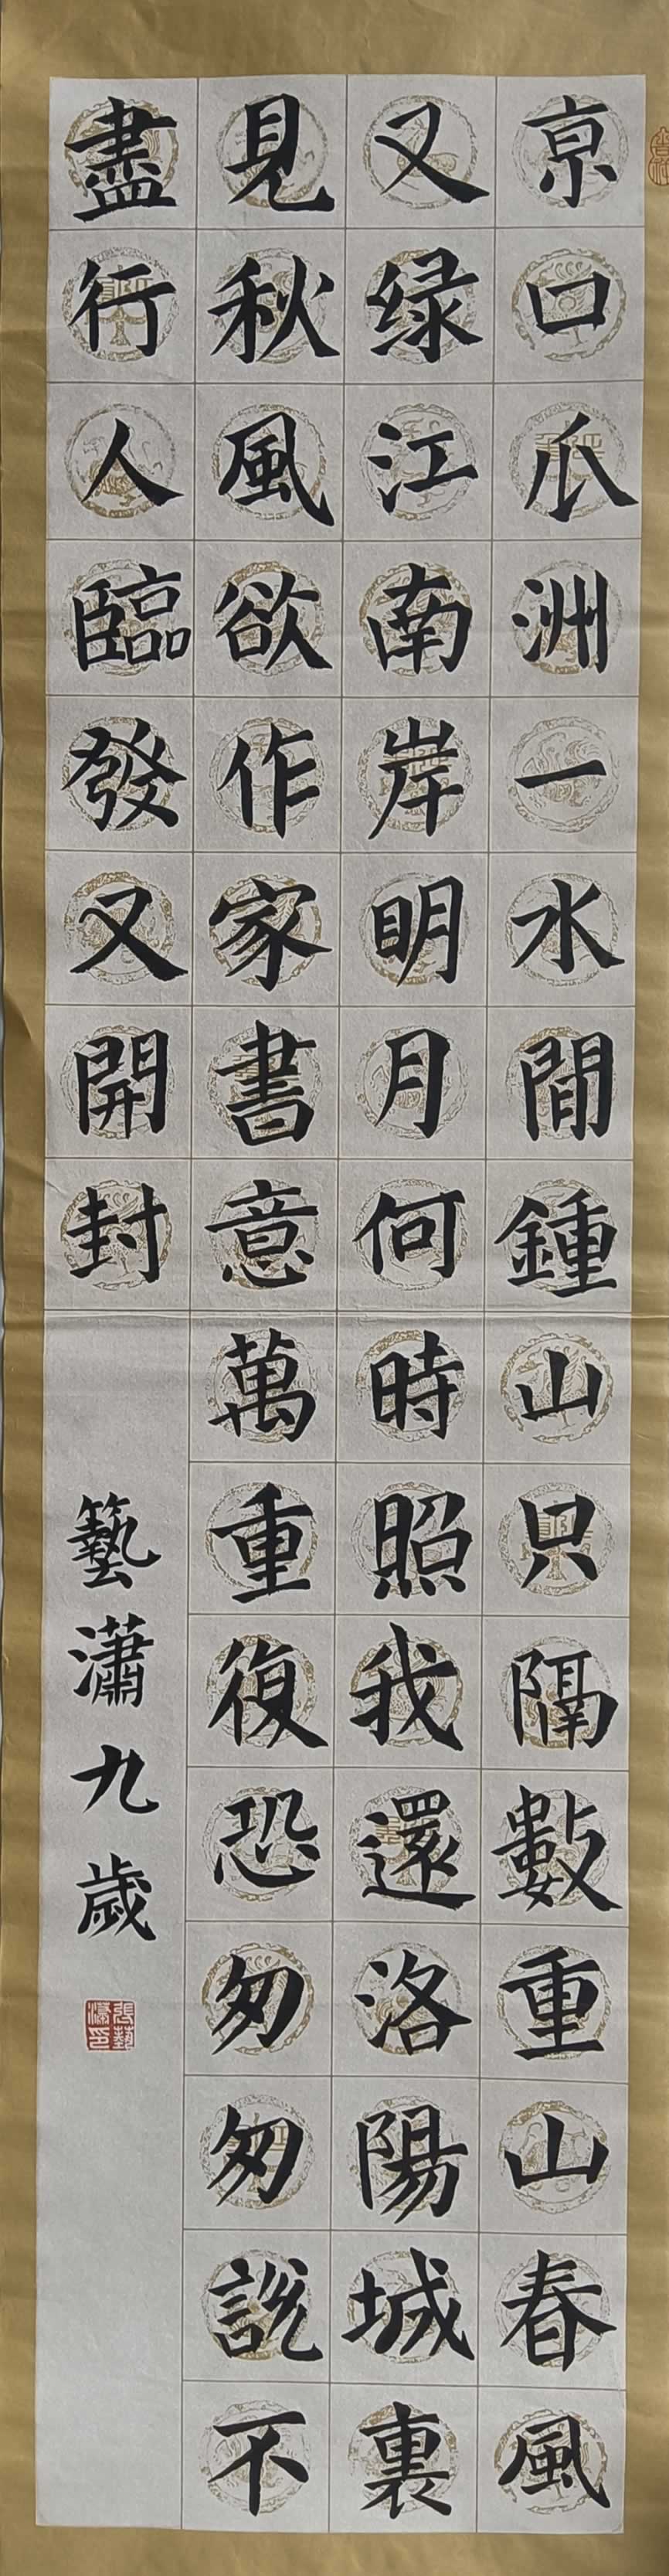 京口瓜洲一水間鍾山只隔數重山春風
又绿江南岸明月何時照我還洛陽城裏
見秋風欲作家書意萬重復恐匆匆説不
盡行人臨發又開封
藝瀟九歲
張藝瀟印